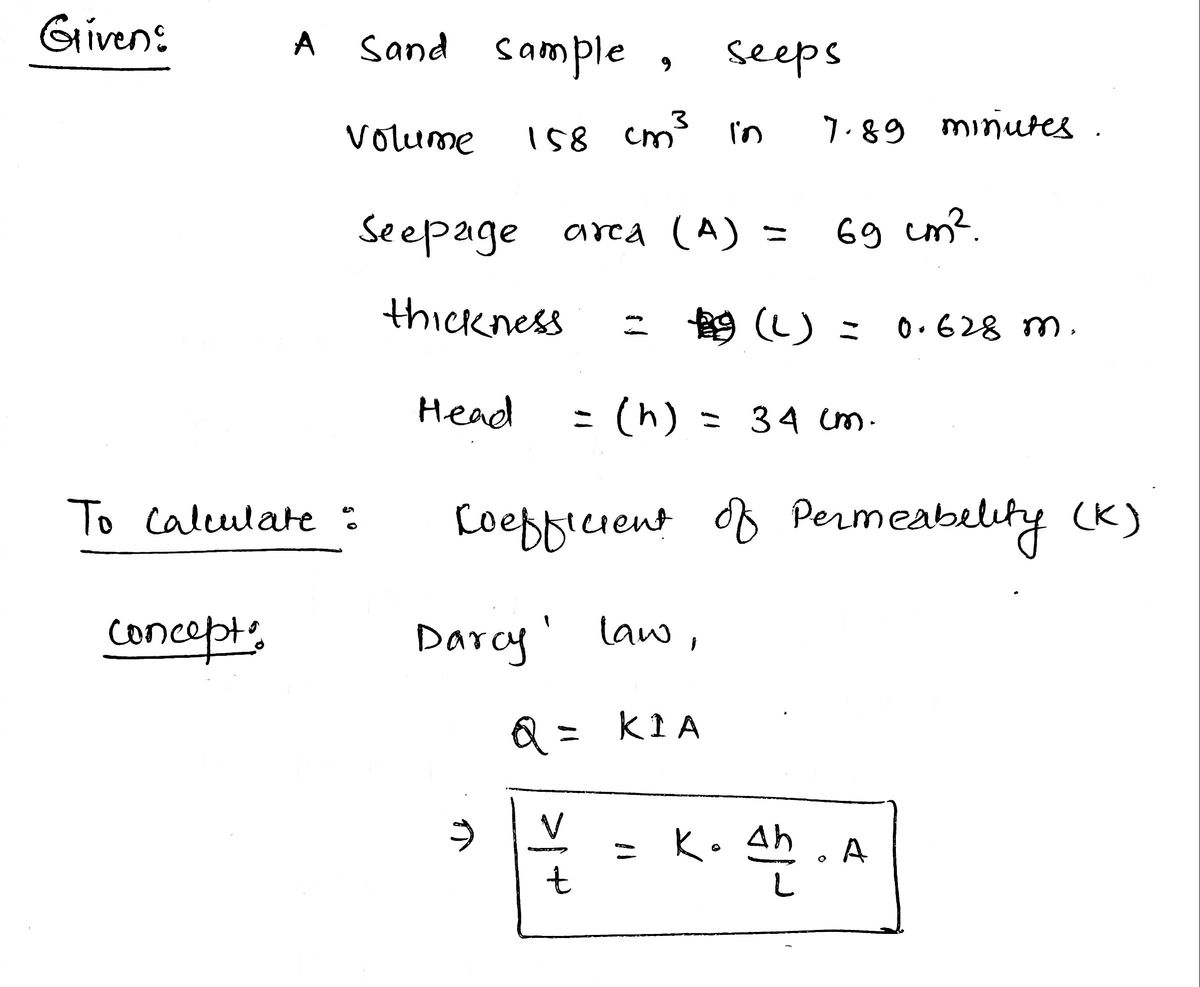 Given: A sand sample, seeps
volume 158 cm³ in 7.89 minutes.
Seepage area (A) = 69 cm².
thickness = (L) = 0.628 m.
Head = (h) = 34 cm.
To Calculate: Coefficient of Permeabelity (K)
Concept: Darcy' law,
Q = KIA
⇒ V/t = K. Δh/L . A